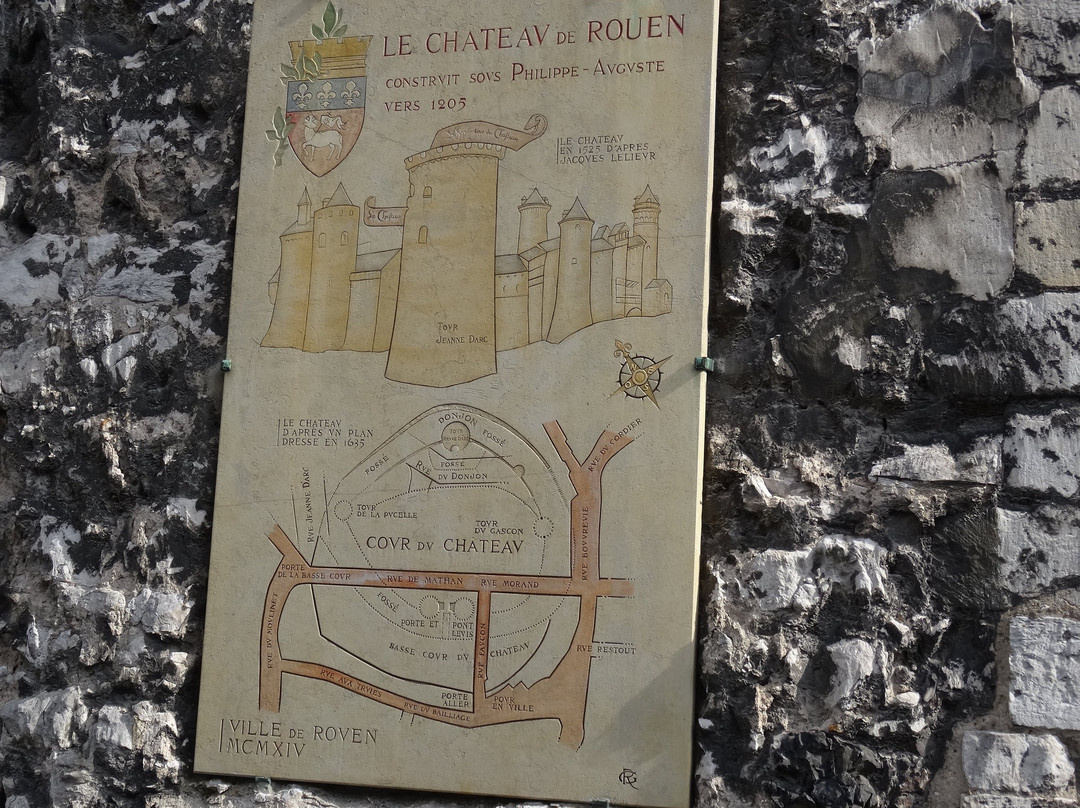 LE CHATEAV DE ROUEN
CONSTRVIT SOVS PHILIPPE-AVGVSTE
VERS 1205
LE CHATEAV
EN 1525 D'APRES
JACQVES LELIEVR
TOVR
JEANNE DARC
LE CHATEAV
D'APRES VN PLAN
DRESSE EN 1635
DONJON
TOVR
JEANNE DARC
FOSSÉ
FOSSÉ
FOSSÉ
RVE
DV DONJON
RVE DV CORDIER
RVE JEANNE DARC
TOVR
DE LA PVCELLE
TOVR
DV GASCON
RVE BOVVREVIL
COVR DV CHATEAV
PORTE
DE LA BASSE COVR
RVE DE MATHAN
RVE MORAND
FOSSÉ
PORTE ET
PONT
LEVIS
RVE DV MOVLINET
RVE FAVCON
BASSE COVR DV
CHATEAV
RVE RESTOUT
RVE AUX TRVIES
RVE DV BAILLIAGE
PORTE
ALLER
POVR
EN VILLE
VILLE DE ROVEN
MCMXIV